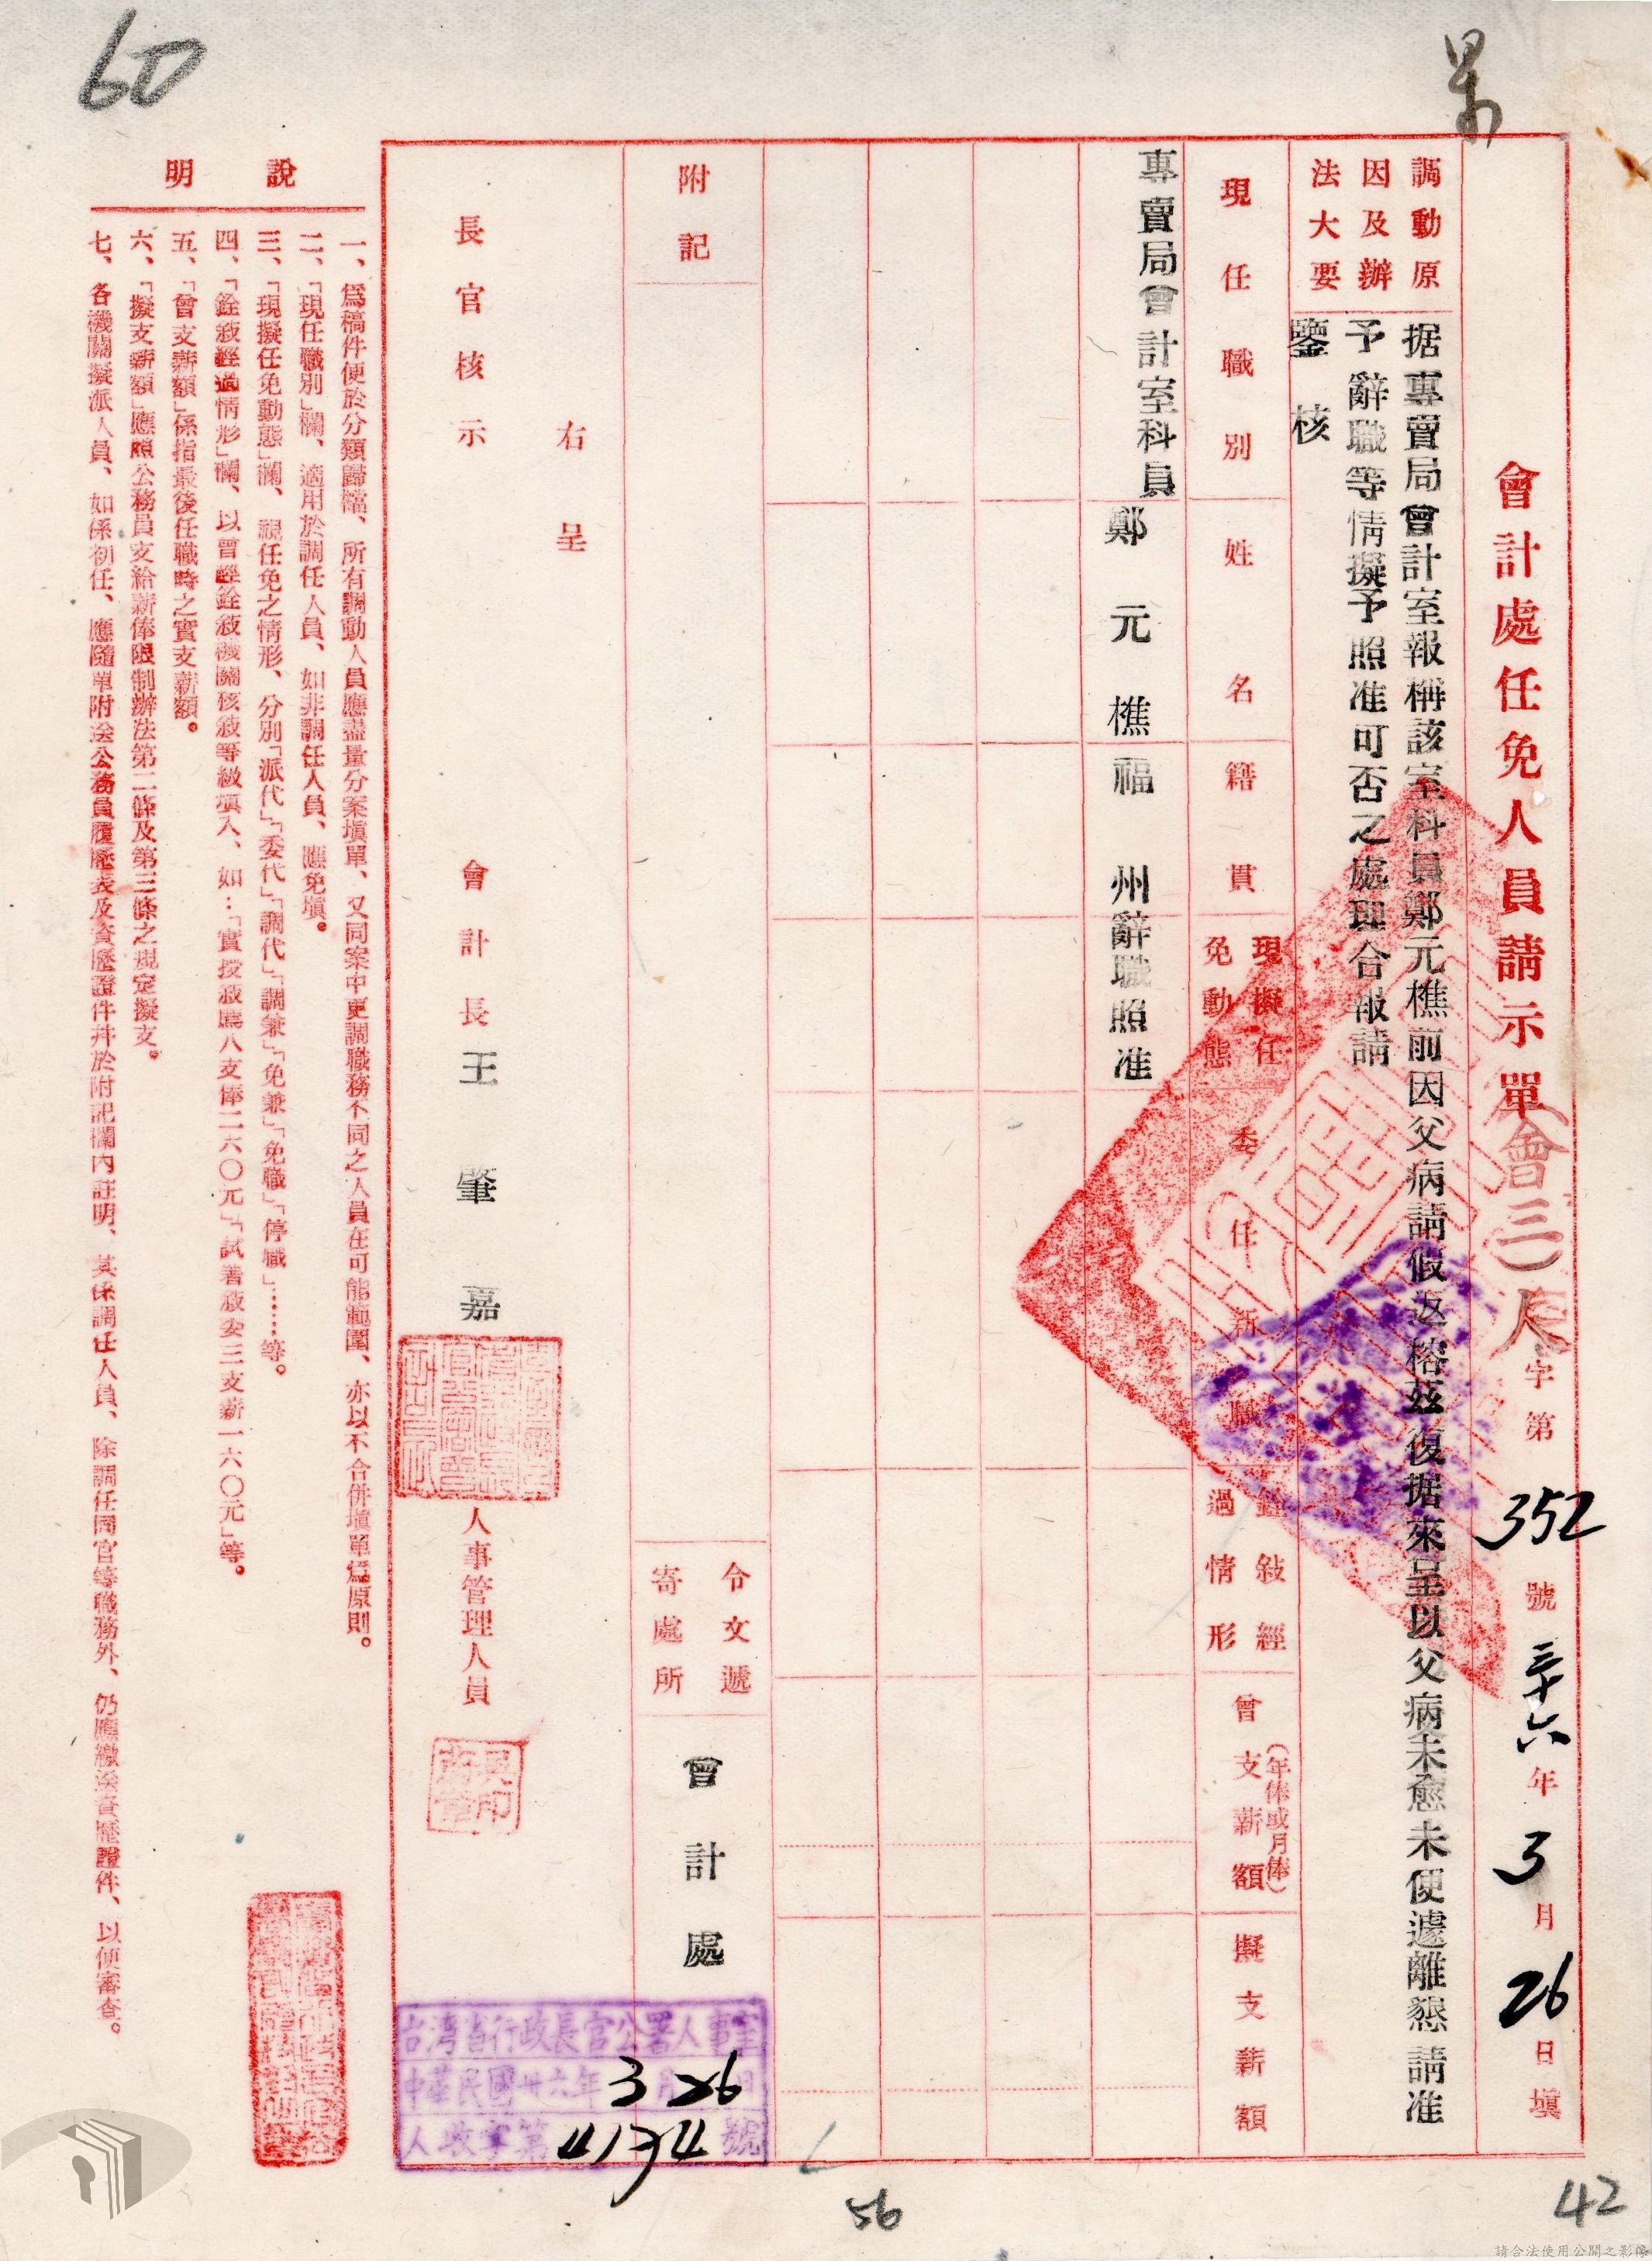 會計處任免人員請示單 會(三)人 字第 352 號 三十六 年 3 月 26 日填
調動原
因及辦
法大要
据專賣局會計室報稱該室科員鄭元樵前因父病請假返榕茲復据來呈以父病未愈未便遽離懇請准
予辭職等情擬予照准可否之處理合報請
鑒核
現任職別
姓名
籍貫
現擬任
免動態
委任新職
銓敍經
過情形
曾支薪額
(年俸或月俸)
擬支薪額
專賣局會計室科員 鄭元樵 福州 辭職照准
附記
令文遞
寄處所
會計處
右呈
長官核示
會計長王肇嘉
人事管理人員
台灣省行政長官公署人事室
中華民國卅六年 3 月 26 日
人收字第 4174 號
說明
一、爲稿件便於分類歸檔、所有調動人員應盡量分案塡單、又同案中更調職務不同之人員在可能範圍、亦以不合併塡單爲原則。
二、「現任職別」欄、適用於調任人員、如非調任人員、應免塡。
三、「現擬任免動態」欄、視任免之情形、分別「派代」「委代」「調代」「調兼」「免兼」「免職」「停職」……等。
四、「銓敍經過情形」欄、以曾經銓敍機關核敍等級塡入、如：「實授敍薦八支俸二六〇元」「試署敍委三支薪一六〇元」等。
五、「曾支薪額」係指最後任職時之實支薪額。
六、「擬支薪額」應照公務員支給薪俸限制辦法第二條及第三條之規定擬支。
七、各機關擬派人員、如係初任、應隨單附送公務員履歷表及資歷證件幷於附記欄內註明、其係調任人員、除調任同官等職務外、仍應繳送資歷證件、以便審查。
56
42
請合法使用公開之影像